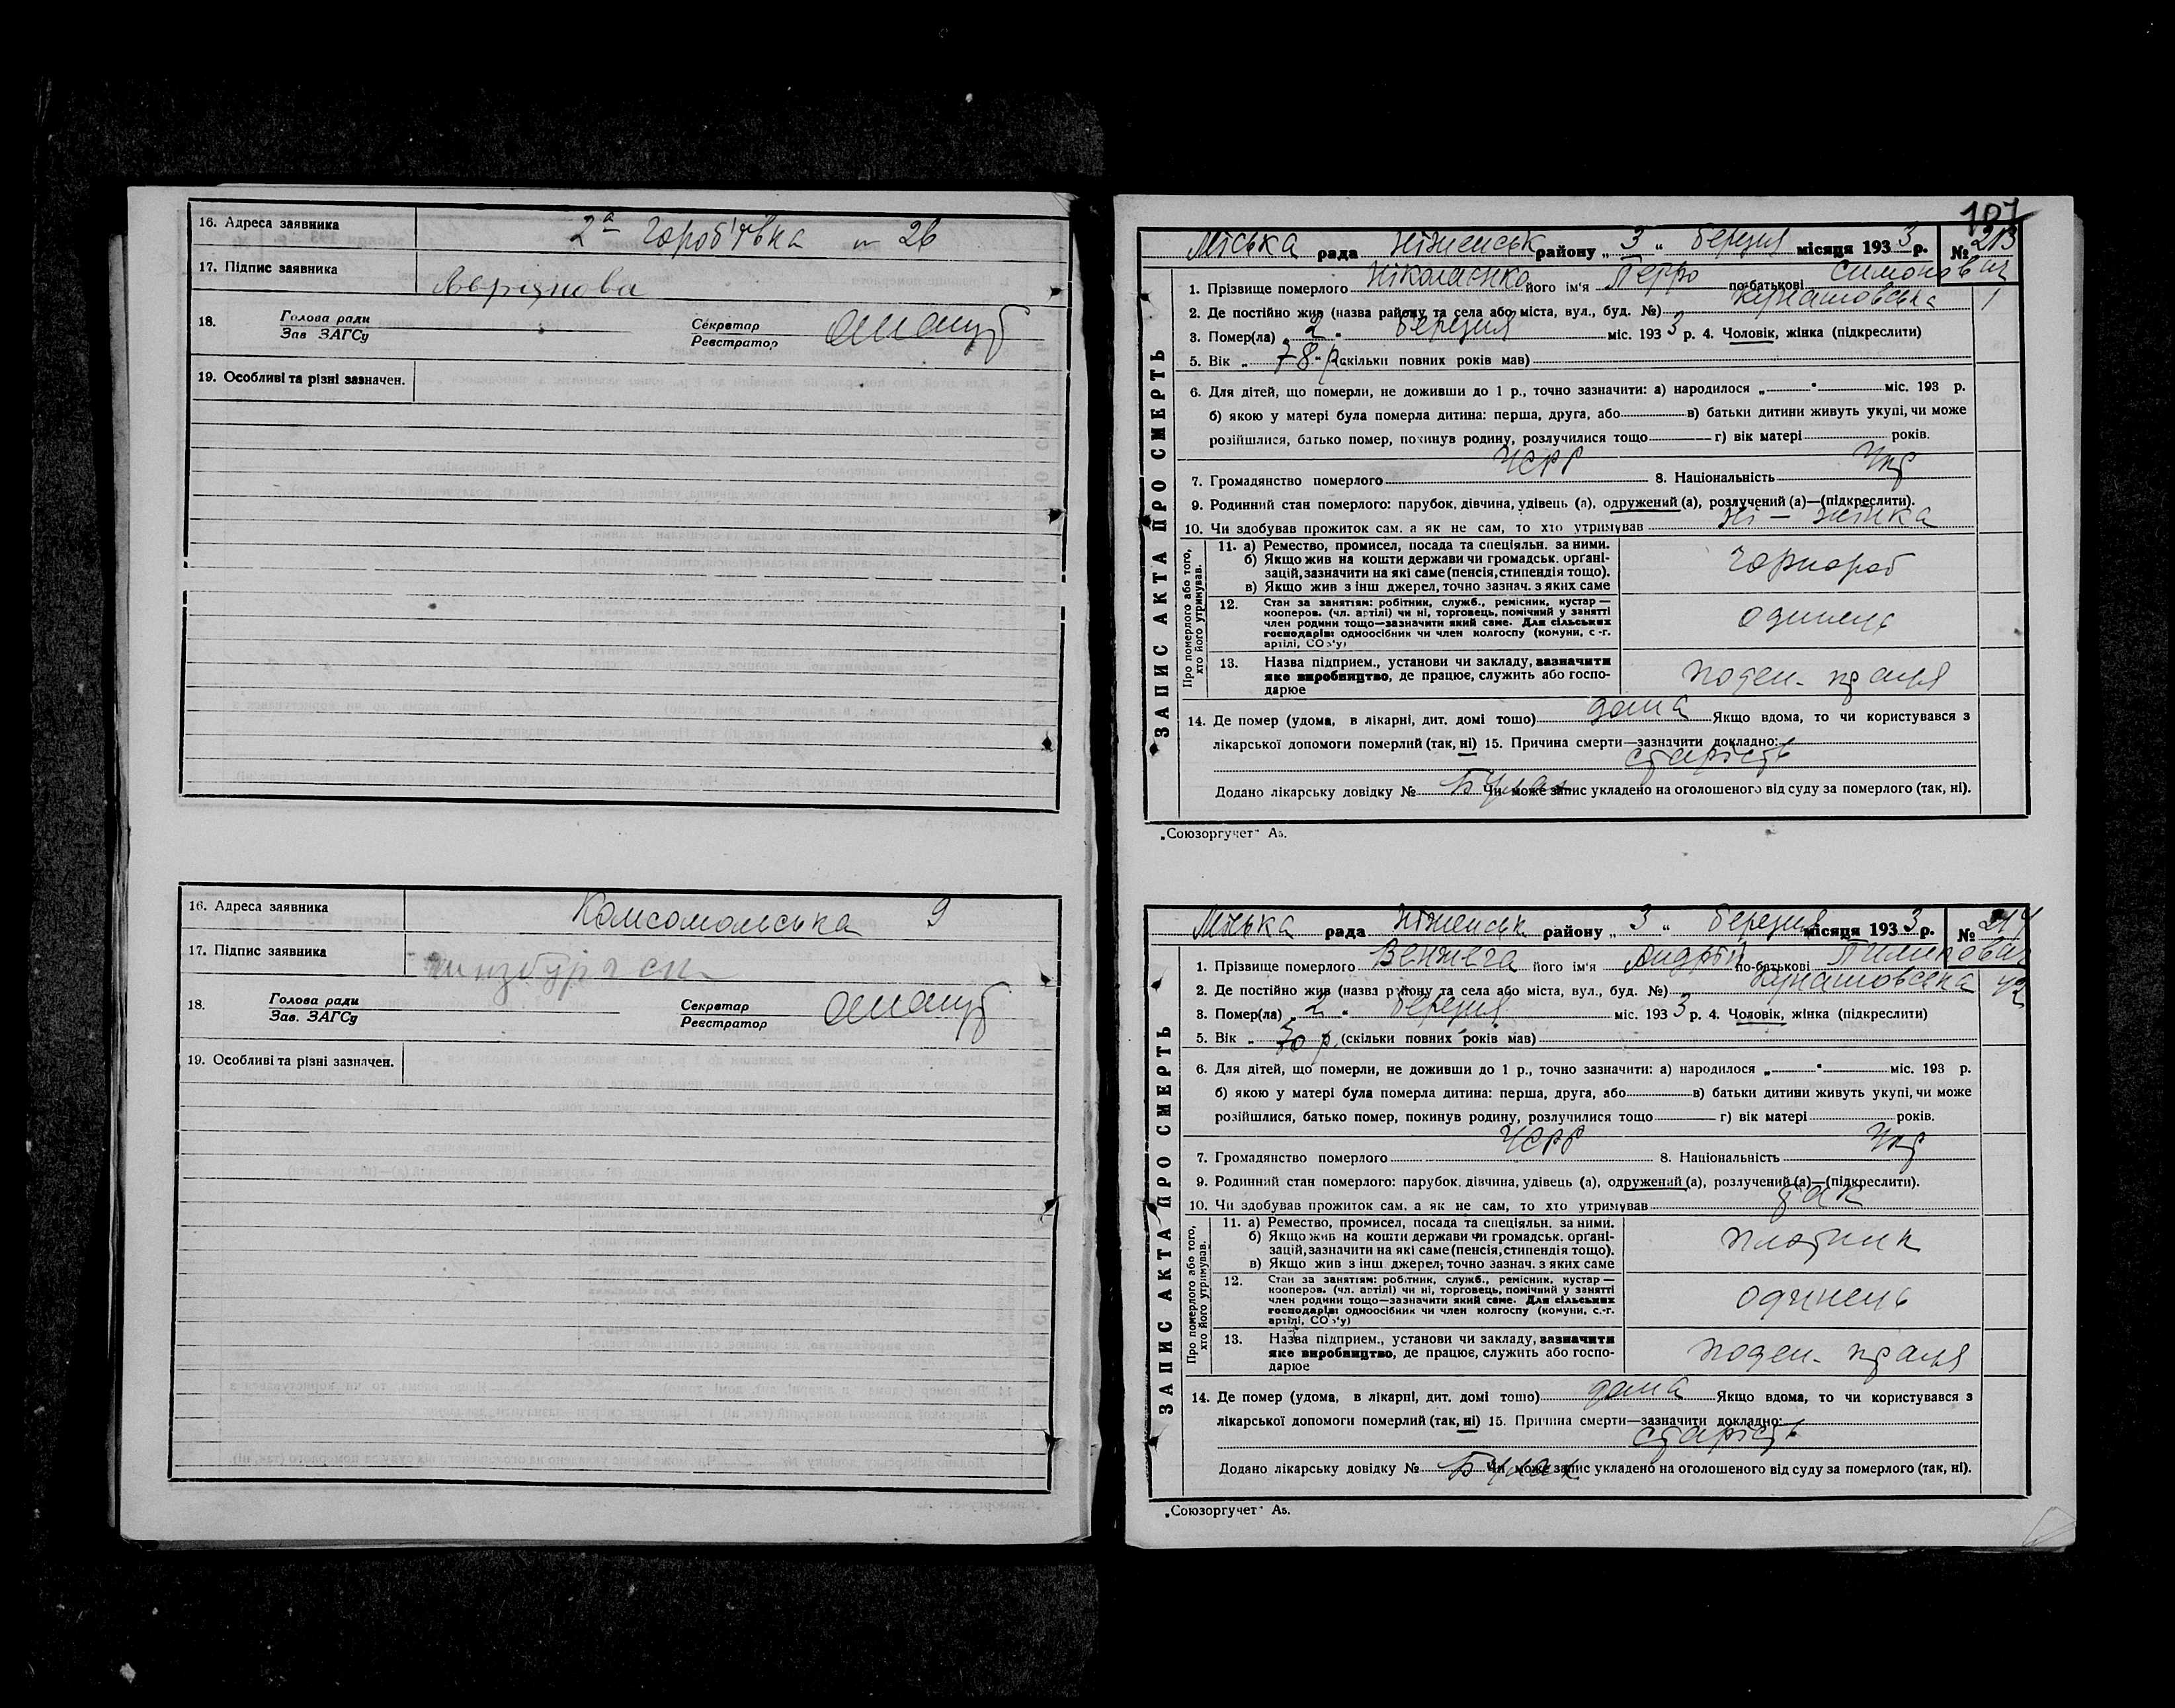 16. Адреса заявника 2а Гороб'ївка № 26
17. Підпис заявника
18. Голова ради
Зав ЗАГСу
Секретар
Реєстратор
19. Особливі та різні зазначен.
16. Адреса заявника Комсомольська 9
17. Підпис заявника
18. Голова ради
Зав. ЗАГСу
Секретар
Реєстратор
19. Особливі та різні зазначен.
107
Міська рада Ніженськ району „ 3 " березня місяця 1933 р. № 213
ЗАПИС АКТА ПРО СМЕРТЬ
1. Прізвище померлого Ніколаєнко його ім'я Петро по-батькові Симонович
2. Де постійно жив (назва району та села або міста, вул., буд. №) Кунашовська 1
3. Помер(ла) 2 " березня міс. 1933 р. 4. Чоловік, жінка (підкреслити)
5. Вік „ 78 " р. (скільки повних років мав)
6. Для дітей, що померли, не доживши до 1 р., точно зазначити: а) народилося „ " міс. 193 р.
б) якою у матері була померла дитина: перша, друга, або в) батьки дитини живуть укупі, чи може
розійшлися, батько помер, покинув родину, розлучилися тощо г) вік матері років.
7. Громадянство померлого УСРР 8. Національність Укр
9. Родинний стан померлого: парубок, дівчина, удівець (а), одружений (а), розлучений (а)—(підкреслити).
10. Чи здобував прожиток сам, а як не сам, то хто утримував ні — жінка
Про померлого або того, хто його утримував.
11. а) Ремество, промисел, посада та спеціяльн. за ними.
б) Якщо жив на кошти держави чи громадськ. органі-
зацій, зазначити на які саме (пенсія, стипендія тощо).
в) Якщо жив з інш джерел, точно зазнач. з яких саме
чорнороб
12. Стан за заняттям: робітник, служб., ремісник, кустар —
кооперов. (чл. артілі) чи ні, торговець, помічний у занятті
член родини тощо—зазначити який саме. Для сільських
господарів: одноосібник чи член колгоспу (комуни, с.-г.
артілі, СОз'у)
одинець
13. Назва підприєм., установи чи закладу, зазначити
яке виробництво, де працює, служить або госпо-
дарює
поден. праця
14. Де помер (удома, в лікарні, дит. домі тощо) дома Якщо вдома, то чи користувався з
лікарської допомоги померлий (так, ні) 15. Причина смерти—зазначити докладно:
старість
Додано лікарську довідку № Чи може запис укладено на оголошеного від суду за померлого (так, ні).
„Союзоргучет" Аз.
Міська рада Ніженськ району „ 3 " березня місяця 1933 р. № 214
ЗАПИС АКТА ПРО СМЕРТЬ
1. Прізвище померлого Венжега його ім'я Андрій по-батькові Пилипович
2. Де постійно жив (назва району та села або міста, вул., буд. №) Кунашовська 42
3. Помер(ла) 2 " березня міс. 1933 р. 4. Чоловік, жінка (підкреслити)
5. Вік „ р. (скільки повних років мав)
6. Для дітей, що померли, не доживши до 1 р., точно зазначити: а) народилося „ " міс. 193 р.
б) якою у матері була померла дитина: перша, друга, або в) батьки дитини живуть укупі, чи може
розійшлися, батько помер, покинув родину, розлучилися тощо г) вік матері років.
7. Громадянство померлого УСРР 8. Національність Укр
9. Родинний стан померлого: парубок, дівчина, удівець (а), одружений (а), розлучений (а)—(підкреслити).
10. Чи здобував прожиток сам, а як не сам, то хто утримував так
Про померлого або того, хто його утримував.
11. а) Ремество, промисел, посада та спеціяльн. за ними.
б) Якщо жив на кошти держави чи громадськ. органі-
зацій, зазначити на які саме (пенсія, стипендія тощо).
в) Якщо жив з інш джерел, точно зазнач. з яких саме
плотник
12. Стан за заняттям: робітник, служб., ремісник, кустар —
кооперов. (чл. артілі) чи ні, торговець, помічний у занятті
член родини тощо—зазначити який саме. Для сільських
господарів: одноосібник чи член колгоспу (комуни, с.-г.
артілі, СОз'у)
одинець
13. Назва підприєм., установи чи закладу, зазначити
яке виробництво, де працює, служить або госпо-
дарює
поден. праця
14. Де помер (удома, в лікарні, дит. домі тощо) дома Якщо вдома, то чи користувався з
лікарської допомоги померлий (так, ні) 15. Причина смерти—зазначити докладно:
старість
Додано лікарську довідку № Чи може запис укладено на оголошеного від суду за померлого (так, ні).
„Союзоргучет" Аз.